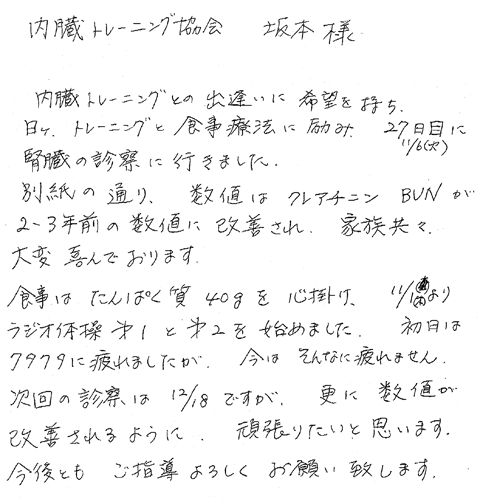 内臓トレーニング協会 坂本 様
内臓トレーニングとの出逢いに希望を持ち、
日々、トレーニングと食事療法に励み、27日目に
11/6(火)
腎臓の診察に行きました。
別紙の通り、数値はクレアチニン BUNが
2~3年前の数値に改善され、家族共々、
大変喜んでおります。
食事はたんぱく質40gを心掛け、11/1より
ラジオ体操第1と第2を始めました。初日は
クタクタに疲れましたが、今はそんなに疲れません。
次回の診察は12/18ですが、更に数値が
改善されるように、頑張りたいと思います。
今後ともご指導よろしくお願い致します。